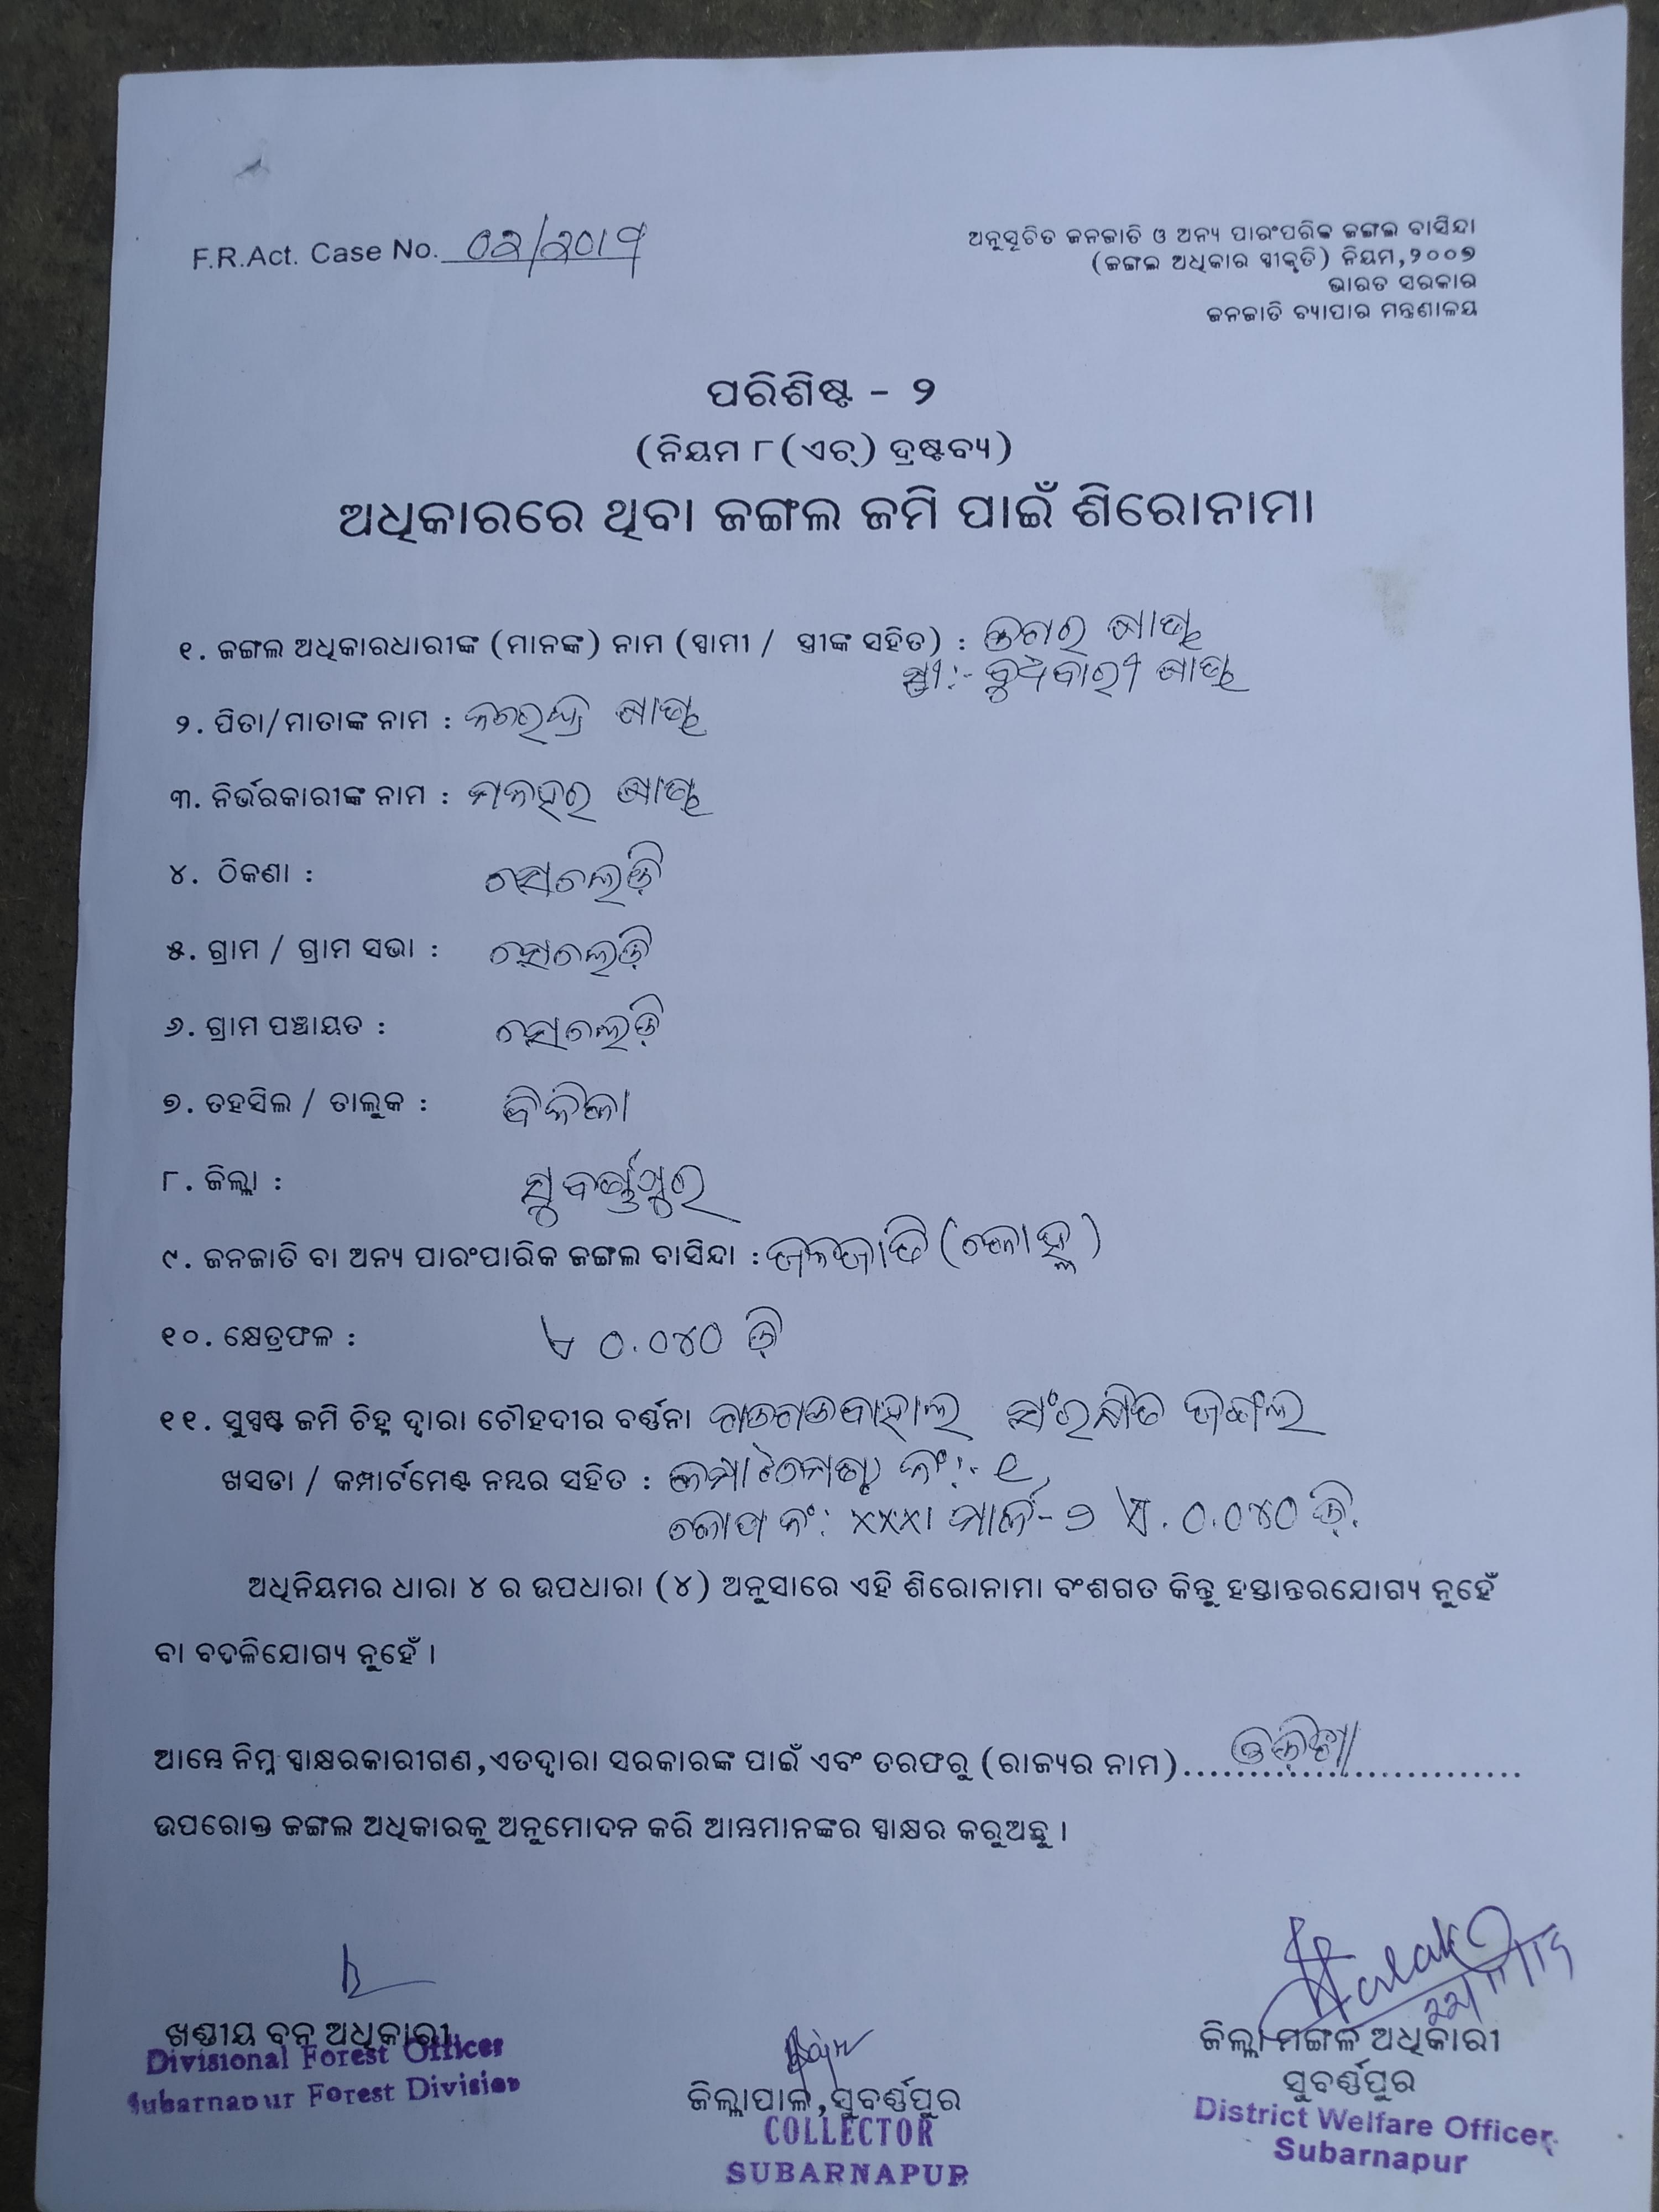 F.R.Act. Case No. ୦୨/୨୦୧୩
ଅନୁସୂଚିତ ଜନଜାତି ଓ ଅନ୍ୟ ପାରଂପରିକ ଜଙ୍ଗଲ ବାସିନ୍ଦା
(ଜଙ୍ଗଲ ଅଧିକାର ସ୍ୱୀକୃତି) ନିୟମ,୨୦୦୭
ଭାରତ ସରକାର
ଜନଜାତି ବ୍ୟାପାର ମନ୍ତ୍ରଣାଳୟ
ପରିଶିଷ୍ଟ - ୨
(ନିୟମ ୮ (ଏଚ୍) ଦ୍ରଷ୍ଟବ୍ୟ)
ଅଧିକାରରେ ଥିବା ଜଙ୍ଗଲ ଜମି ପାଇଁ ଶିରୋନାମା
୧. ଜଙ୍ଗଲ ଅଧିକାରଧାରୀଙ୍କ (ମାନଙ୍କ) ନାମ (ସ୍ୱାମୀ / ସ୍ତ୍ରୀଙ୍କ ସହିତ) :
ସ୍ତ୍ରୀ:- ବୁଧବାରୀ
୨. ପିତା/ମାତାଙ୍କ ନାମ :
୩. ନିର୍ଭରକାରୀଙ୍କ ନାମ :
୪. ଠିକଣା : ସେଲେଡ଼ି
୫. ଗ୍ରାମ / ଗ୍ରାମ ସଭା : ସେଲେଡ଼ି
୬. ଗ୍ରାମ ପଞ୍ଚାୟତ : ସେଲେଡ଼ି
୭. ତହସିଲ / ତାଲୁକ : ବିନିକା
୮. ଜିଲ୍ଲା : ସୁବର୍ଣ୍ଣପୁର
୯. ଜନଜାତି ବା ଅନ୍ୟ ପାରଂପାରିକ ଜଙ୍ଗଲ ବାସିନ୍ଦା : ଜନଜାତି (କୋହ୍ଲ)
୧୦. କ୍ଷେତ୍ରଫଳ : ଏ ୦.୦୪୦ ଡ଼ି
୧୧. ସୁସ୍ପଷ୍ଟ ଜମି ଚିହ୍ନ ଦ୍ୱାରା ଚୌହଦୀର ବର୍ଣ୍ଣନା ସଂରକ୍ଷିତ ଜଙ୍ଗଲ
ଖସଡା / କମ୍ପାର୍ଟମେଣ୍ଟ ନମ୍ବର ସହିତ : କମ୍ପାର୍ଟମେଣ୍ଟ ନଂ:- ୧,
ନଂ: XXXI ଏ. ୦.୦୪୦ ଡ଼ି.
ଅଧିନିୟମର ଧାରା ୪ ର ଉପଧାରା (୪) ଅନୁସାରେ ଏହି ଶିରୋନାମା ବଂଶଗତ କିନ୍ତୁ ହସ୍ତାନ୍ତରଯୋଗ୍ୟ ନୁହେଁ
ବା ବଦଳିଯୋଗ୍ୟ ନୁହେଁ ।
ଆମ୍ଭେ ନିମ୍ନ ସ୍ୱାକ୍ଷରକାରୀଗଣ,ଏତଦ୍ୱାରା ସରକାରଙ୍କ ପାଇଁ ଏବଂ ତରଫରୁ (ରାଜ୍ୟର ନାମ).......ଓଡ଼ିଶା.......
ଉପରୋକ୍ତ ଜଙ୍ଗଲ ଅଧିକାରକୁ ଅନୁମୋଦନ କରି ଆମ୍ଭମାନଙ୍କର ସ୍ୱାକ୍ଷର କରୁଅଛୁ ।
ଖଣ୍ଡୀୟ ବନ ଅଧିକାରୀ
Divisional Forest Officer
Subarnapur Forest Division
ଜିଲ୍ଲାପାଳ,ସୁବର୍ଣ୍ଣପୁର
COLLECTOR
SUBARNAPUR
ଜିଲ୍ଲା ମଙ୍ଗଳ ଅଧିକାରୀ
ସୁବର୍ଣ୍ଣପୁର
District Welfare Officer
Subarnapur